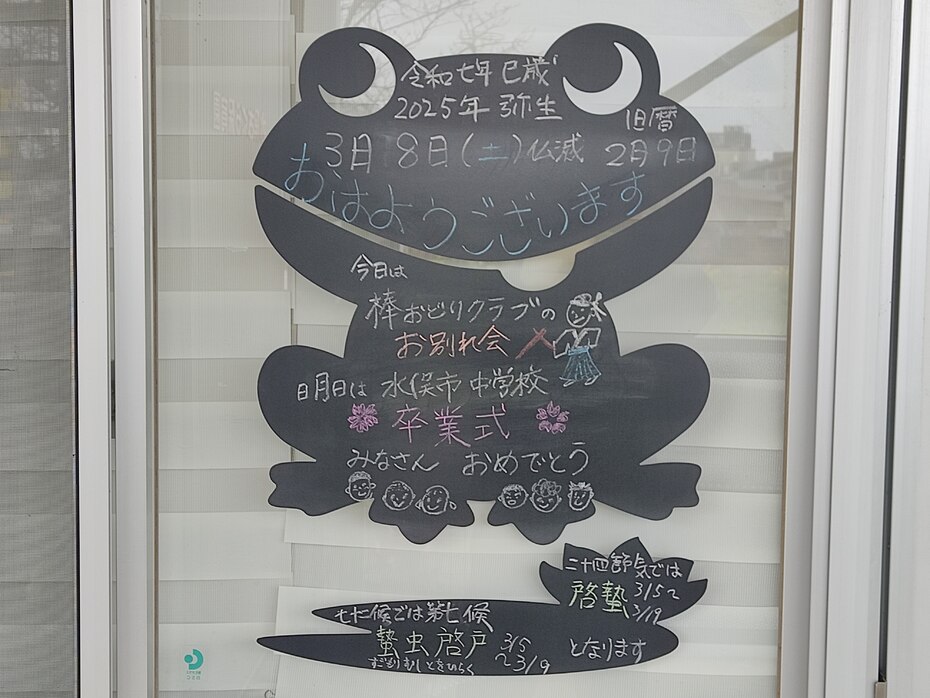 令和七年 巳歳
2025年 弥生
旧暦
3月8日(土)仏滅 2月9日
おはようございます
今日は
棒おどりクラブの
お別れ会
明日は 水俣市 中学校
卒業式
みなさん おめでとう
二十四節気では
啓蟄 3/5~
3/19
七十二候では第七候
蟄虫啓戸 3/5
~3/9
すごもりむしとをひらく
となります